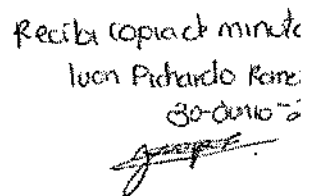 Recibi copia de minuta
Ivan Pichardo Rame
30-Junio-2